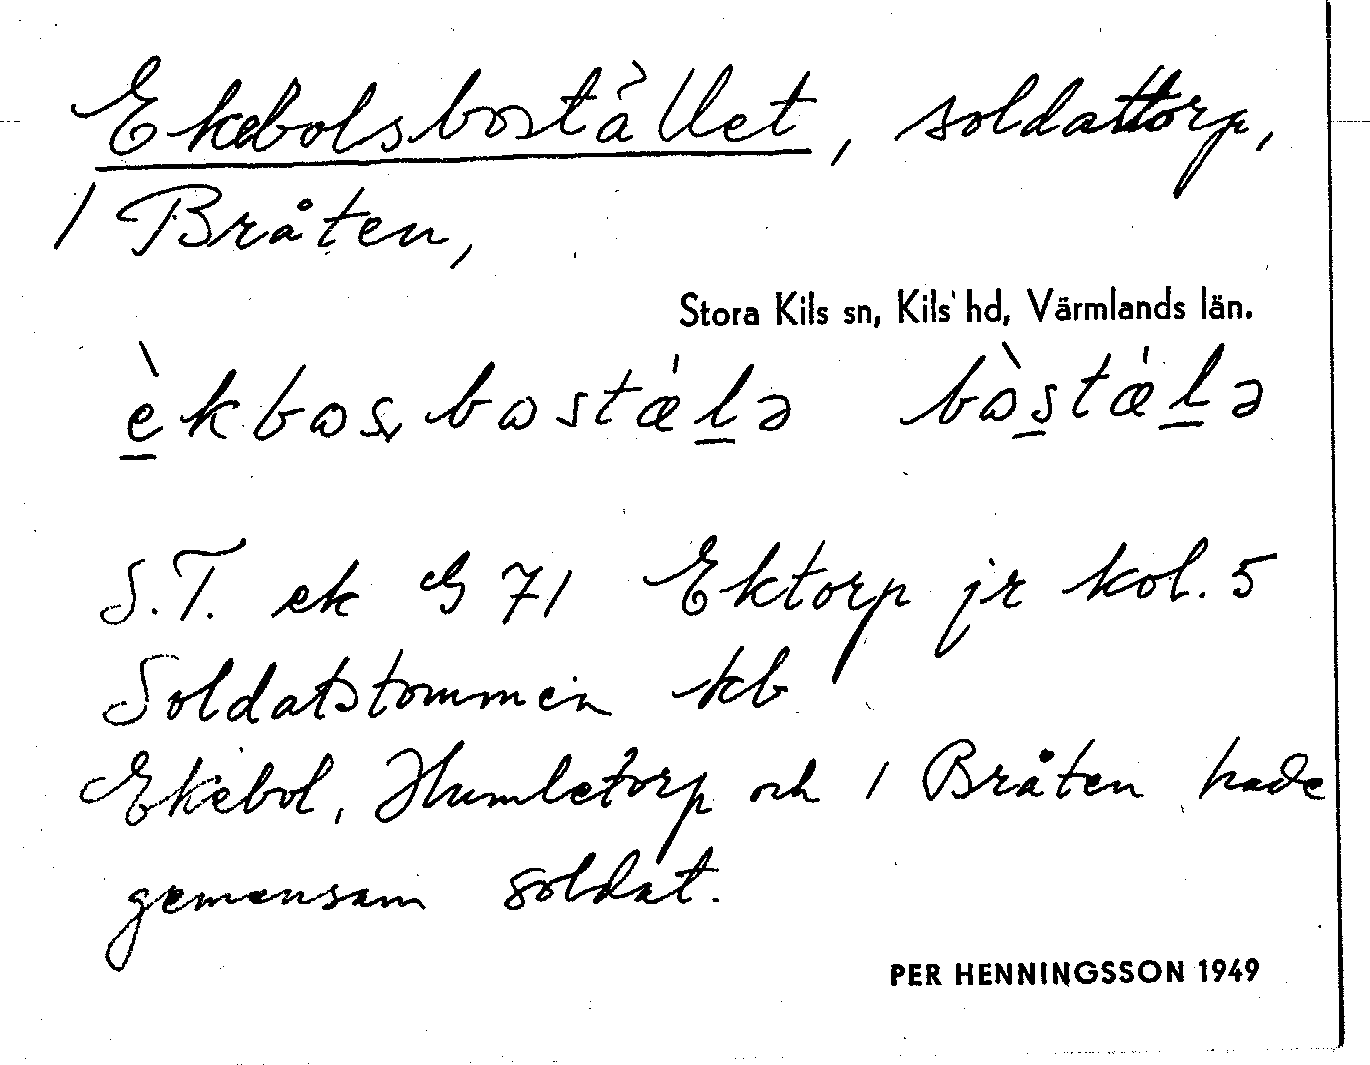 Ekebolsbostället, soldattorp,
1 Bråten,
Stora Kils sn, Kils hd, Värmlands län.
S.T. ek G 71 Ektorp jr kol. 5
Soldatstommen kb
Ekebol, Humletorp och 1 Bråten hade
gemensam soldat.
PER HENNINGSSON 1949